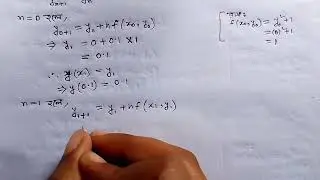 n=0 হলে,
y₀₊₁ = y₀ + hf(x₀, y₀)
⇒ y₁ = 0 + 0.1 × 1
= 0.1
∴ y(x₁) = y₁
⇒ y(0.1) = 0.1
n=1 হলে, y₁₊₁ = y₁ + hf(x₁, y₁)
f(x₀, y₀) = y₀² + 1
= (0)² + 1
= 1